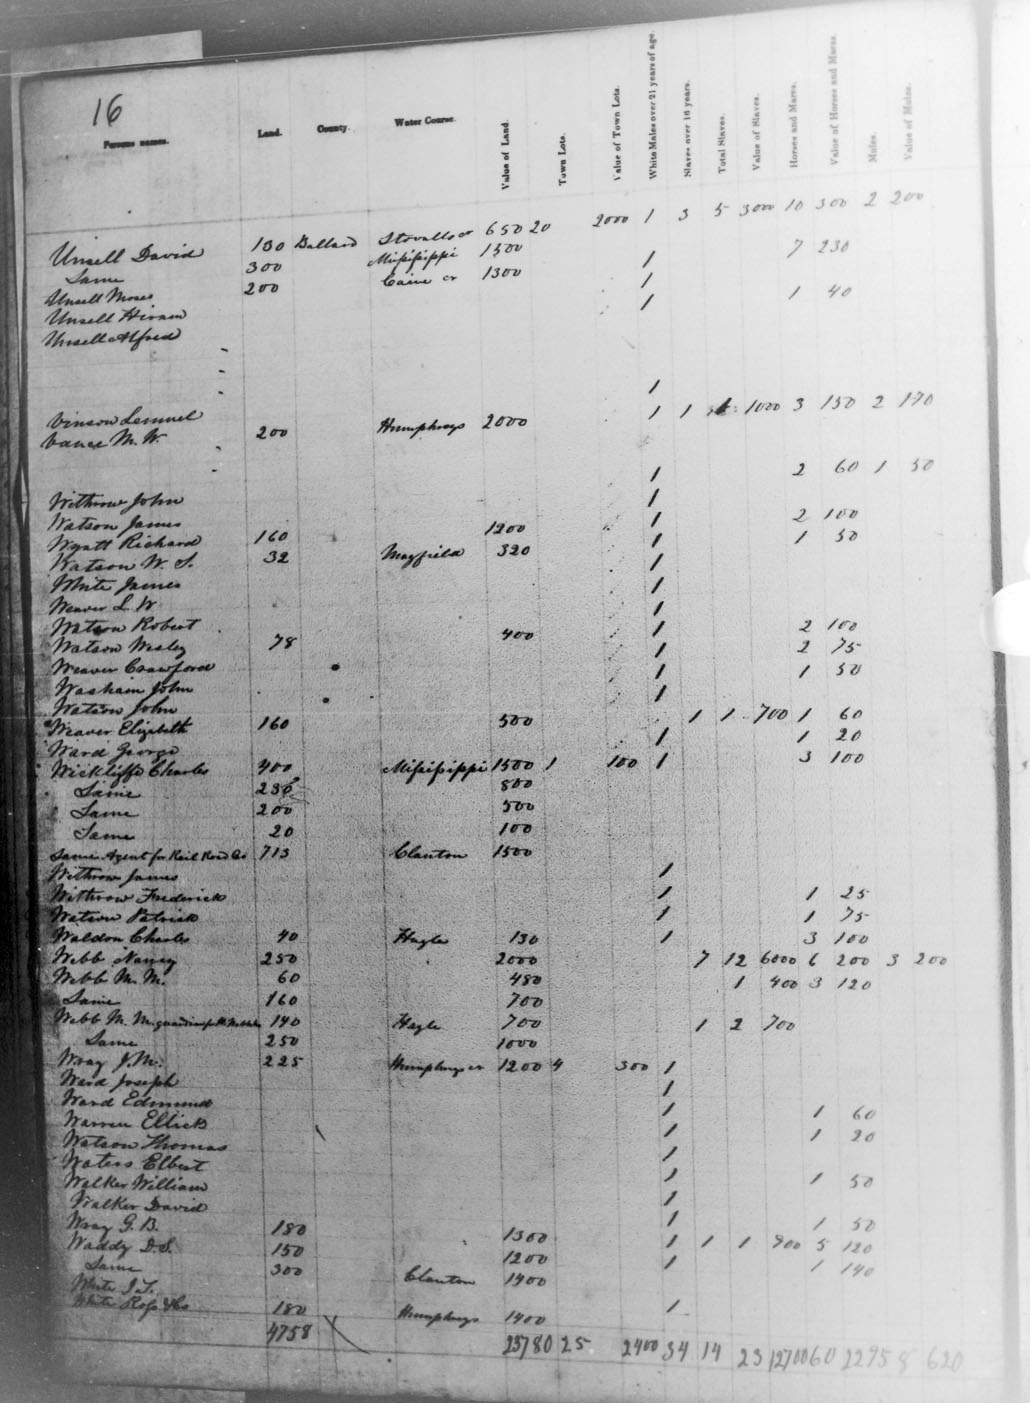 16
Persons names. Land. County. Water Course. Value of Land. Town Lots. Value of Town Lots. White Males over 21 years of age. Slaves over 16 years. Total Slaves. Value of Slaves. Horses and Mares. Value of Horses and Mares. Mules. Value of Mules.
Unsell David 130 Ballard Stovalls cr 650 20 2000 1 3 5 3000 10 300 2 200
Same 300 Missisippi 1500
Unsell Moses 200 Caine cr 1300 1 7 230
Unsell Hiram 1
Unsell Alfred 1 1 40
Vinson Lemuel 1
Vance M. W. 200 Humphreys 2000 1 1 1000 3 150 2 170
Withrow John 1 2 60 1 50
Watson James 1
Wyatt Richard 160 1200 1 2 100
Watson W. S. 32 Mayfield 320 1 1 50
White James 1
Weaver L. W. 1
Watson Robert 1
Watson Wesley 78 400 1 2 100
Weaver Crawford 1 2 75
Washam John 1 1 50
Watson John 1
Weaver Elizabeth 160 500 1 1 700 1 60
Ward George 1 1 20
Wickliffe Charles 400 Missisippi 1500 1 100 1 3 100
Same 230 800
Same 200 500
Same 20 100
Same Agent for Rail Road Co 713 Clanton 1500
Withrow James 1
Withrow Frederick 1 1 25
Watson Patrick 1 1 75
Waldon Charles 40 Hagle 130 1 3 100
Webb Nancy 250 2000 7 12 6000 6 200 3 200
Webb M. M. 60 480 1 400 3 120
Same 160 700
Webb M. M. guardian for 140 Hagle 700 1 2 700
Same 250 1000
Wray J. M. 225 Humphreys cr 1200 4 300 1
Ward Joseph 1
Ward Edmund 1 1 60
Warren Ellick 1 1 20
Watson Thomas 1
Waters Elbert 1 1 50
Walker William 1
Walker David 1 1 50
Wray G. B. 180 1300 1 1 1 900 5 120
Waddy D. S. 150 1200 1 1 140
Same 300 Clanton 1400
White J. T. 1
White Ross & Co 180 Humphreys 1400
4758 23780 25 2400 34 14 23 12700 60 2295 8 620